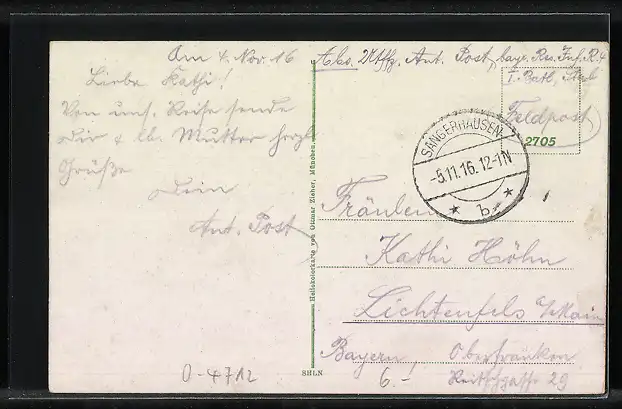 Am 4. Nov. 16
Liebe Kathi!
Von uns. Reise sende
Dir & lb. Mutter herzl.
Grüße
Dein
Ant. Post
Abs. Utffz. Ant. Post, bayr. Res. Inf. R. 4
I. Batl., Stab
Feldpost
2705
SANGERHAUSEN
-5.11.16. 12-1N
* b. *
Fräulein
Kathi Höhn
Lichtenfels a/Main
Bayern, Oberfranken
29
Heliokolorkarte von Ottmar Zieher, München.
SHLN
O-4712
6.-